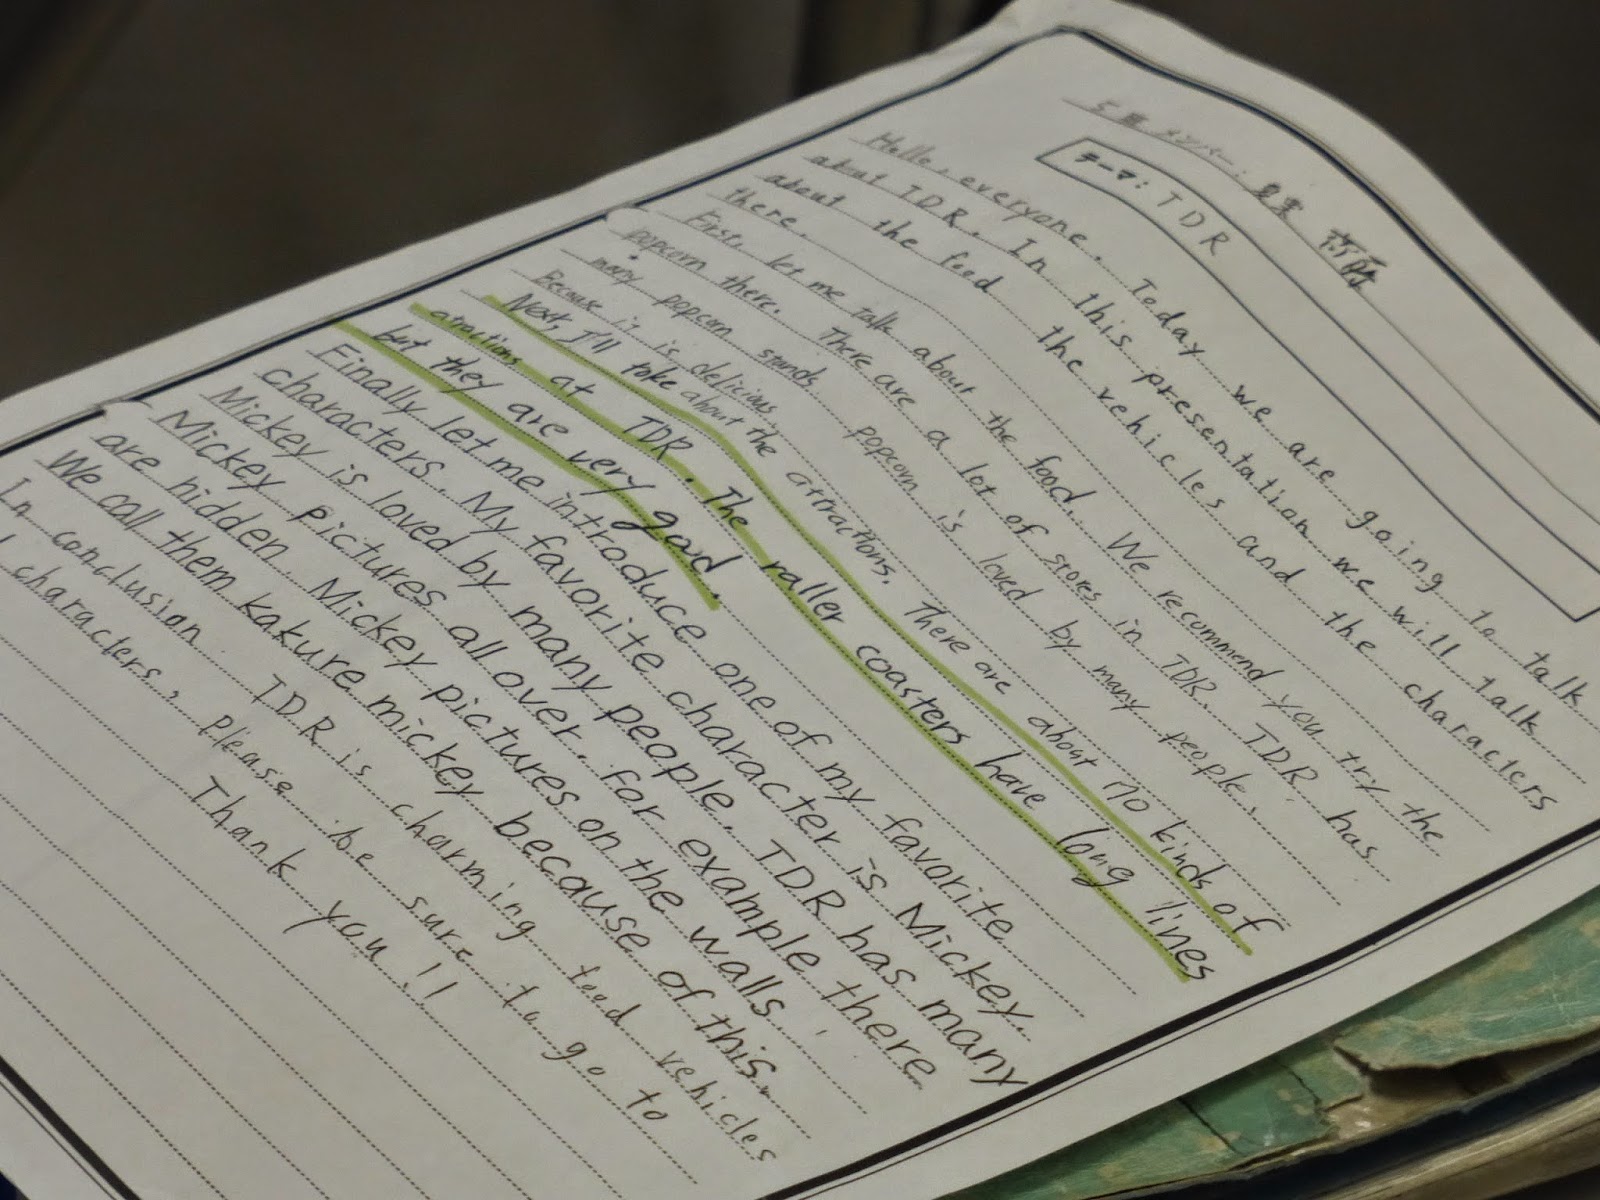 5班 メンバー:
テーマ: TDR
Hello, everyone. Today we are going to talk
about TDR. In this presentation we will talk
about the food the vehicles and the characters
there.
First, let me talk about the food. We recommend you try the
popcorn there. There are a lot of stores in TDR. TDR has
many popcorn stands. popcorn is loved by many people.
Because it is delicious.
Next, I'll take about the attractions. There are about 110 kinds of
atractions at TDR. The raller coasters have long lines
but they are very good.
Finally let me introduce one of my favorite
characters. My favorite character is Mickey.
Mickey is loved by many people. TDR has many
Mickey pictures all over. For example there
are hidden Mickey pictures on the walls.
We call them kakure mickey because of this.
In conclusion TDR is charming food vehicles
characters, please be sure to go to
Thank you!!